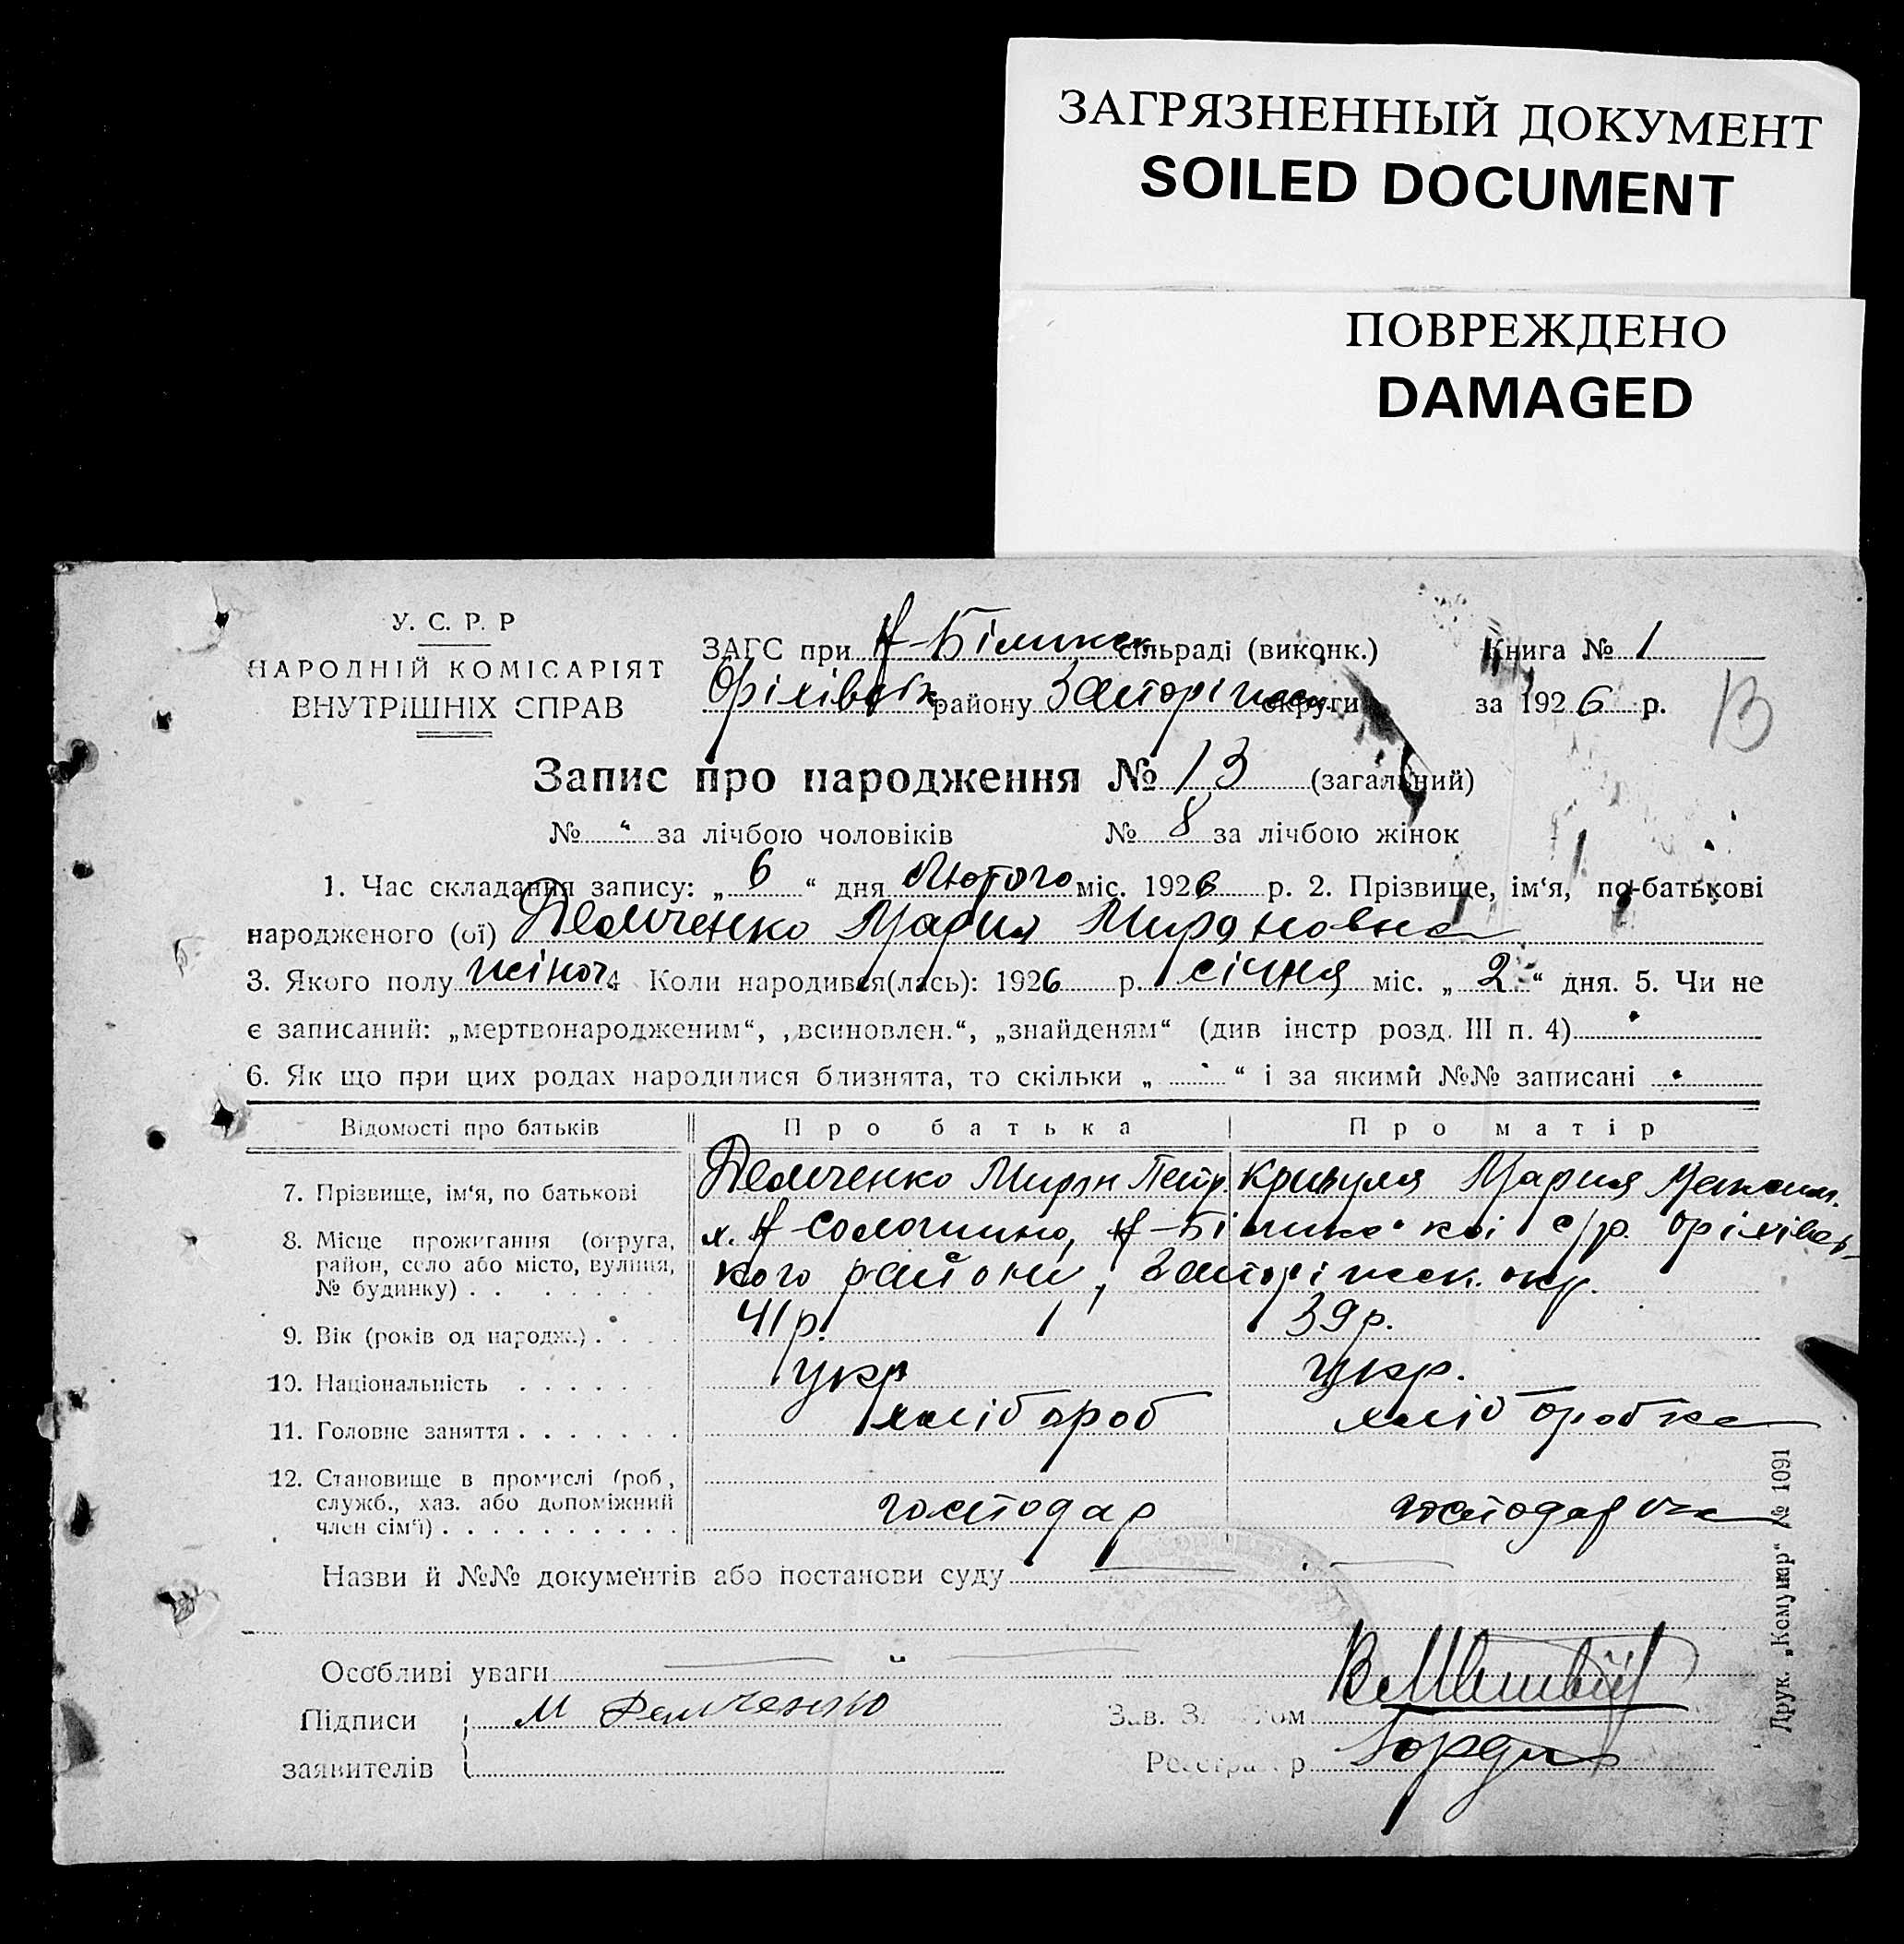 ЗАГРЯЗНЕННЫЙ ДОКУМЕНТ
SOILED DOCUMENT
ПОВРЕЖДЕНО
DAMAGED
У. С. Р. Р
НАРОДНІЙ КОМІСАРІЯТ
ВНУТРІШНІХ СПРАВ
ЗАГС при сільраді (виконк.) Книга № 1
району округи за 1926 р.
13
Запис про народження № 13 (загальний)
№ за лічбою чоловіків № 8 за лічбою жінок
1. Час складання запису: „ 6 “ дня Лютого міс. 1926 р. 2. Прізвище, ім‘я, по-батькові
народженого (ої) Демченко Мария Мироновна
3. Якого полу жіноч. 4 Коли народився(лась): 1926 р. січня міс. „ 2 “ дня. 5. Чи не
є записаний: „мертвонародженим“, „всиновлен.“, „знайденям“ (див інстр розд. III п. 4)
6. Як що при цих родах народилися близнята, то скільки „ “ і за якими №№ записані
Відомості про батьків Про батька Про матір
7. Прізвище, ім‘я, по батькові Демченко Мирон Петр. Кривуля Мария Максим.
8. Місце прожигання (округа,
район, село або місто, вулиця,
№ будинку)
х. с/р. Оріхівсь-
кого району, Запоріжск. окр.
9. Вік (років од народж.) 41 р. 39 р.
10. Національність укр укр.
11. Головне заняття хлібороб хлібборобка
12. Становище в промислі (роб,
служб., хаз. або допоміжний
член сім‘ї) господар
Назви й №№ документів або постанови суду
Особливі уваги
Підписи М Демченко Зав. ЗАГС‘ом
заявителів Реєстратор
Друк. „Комунар“ № 1091